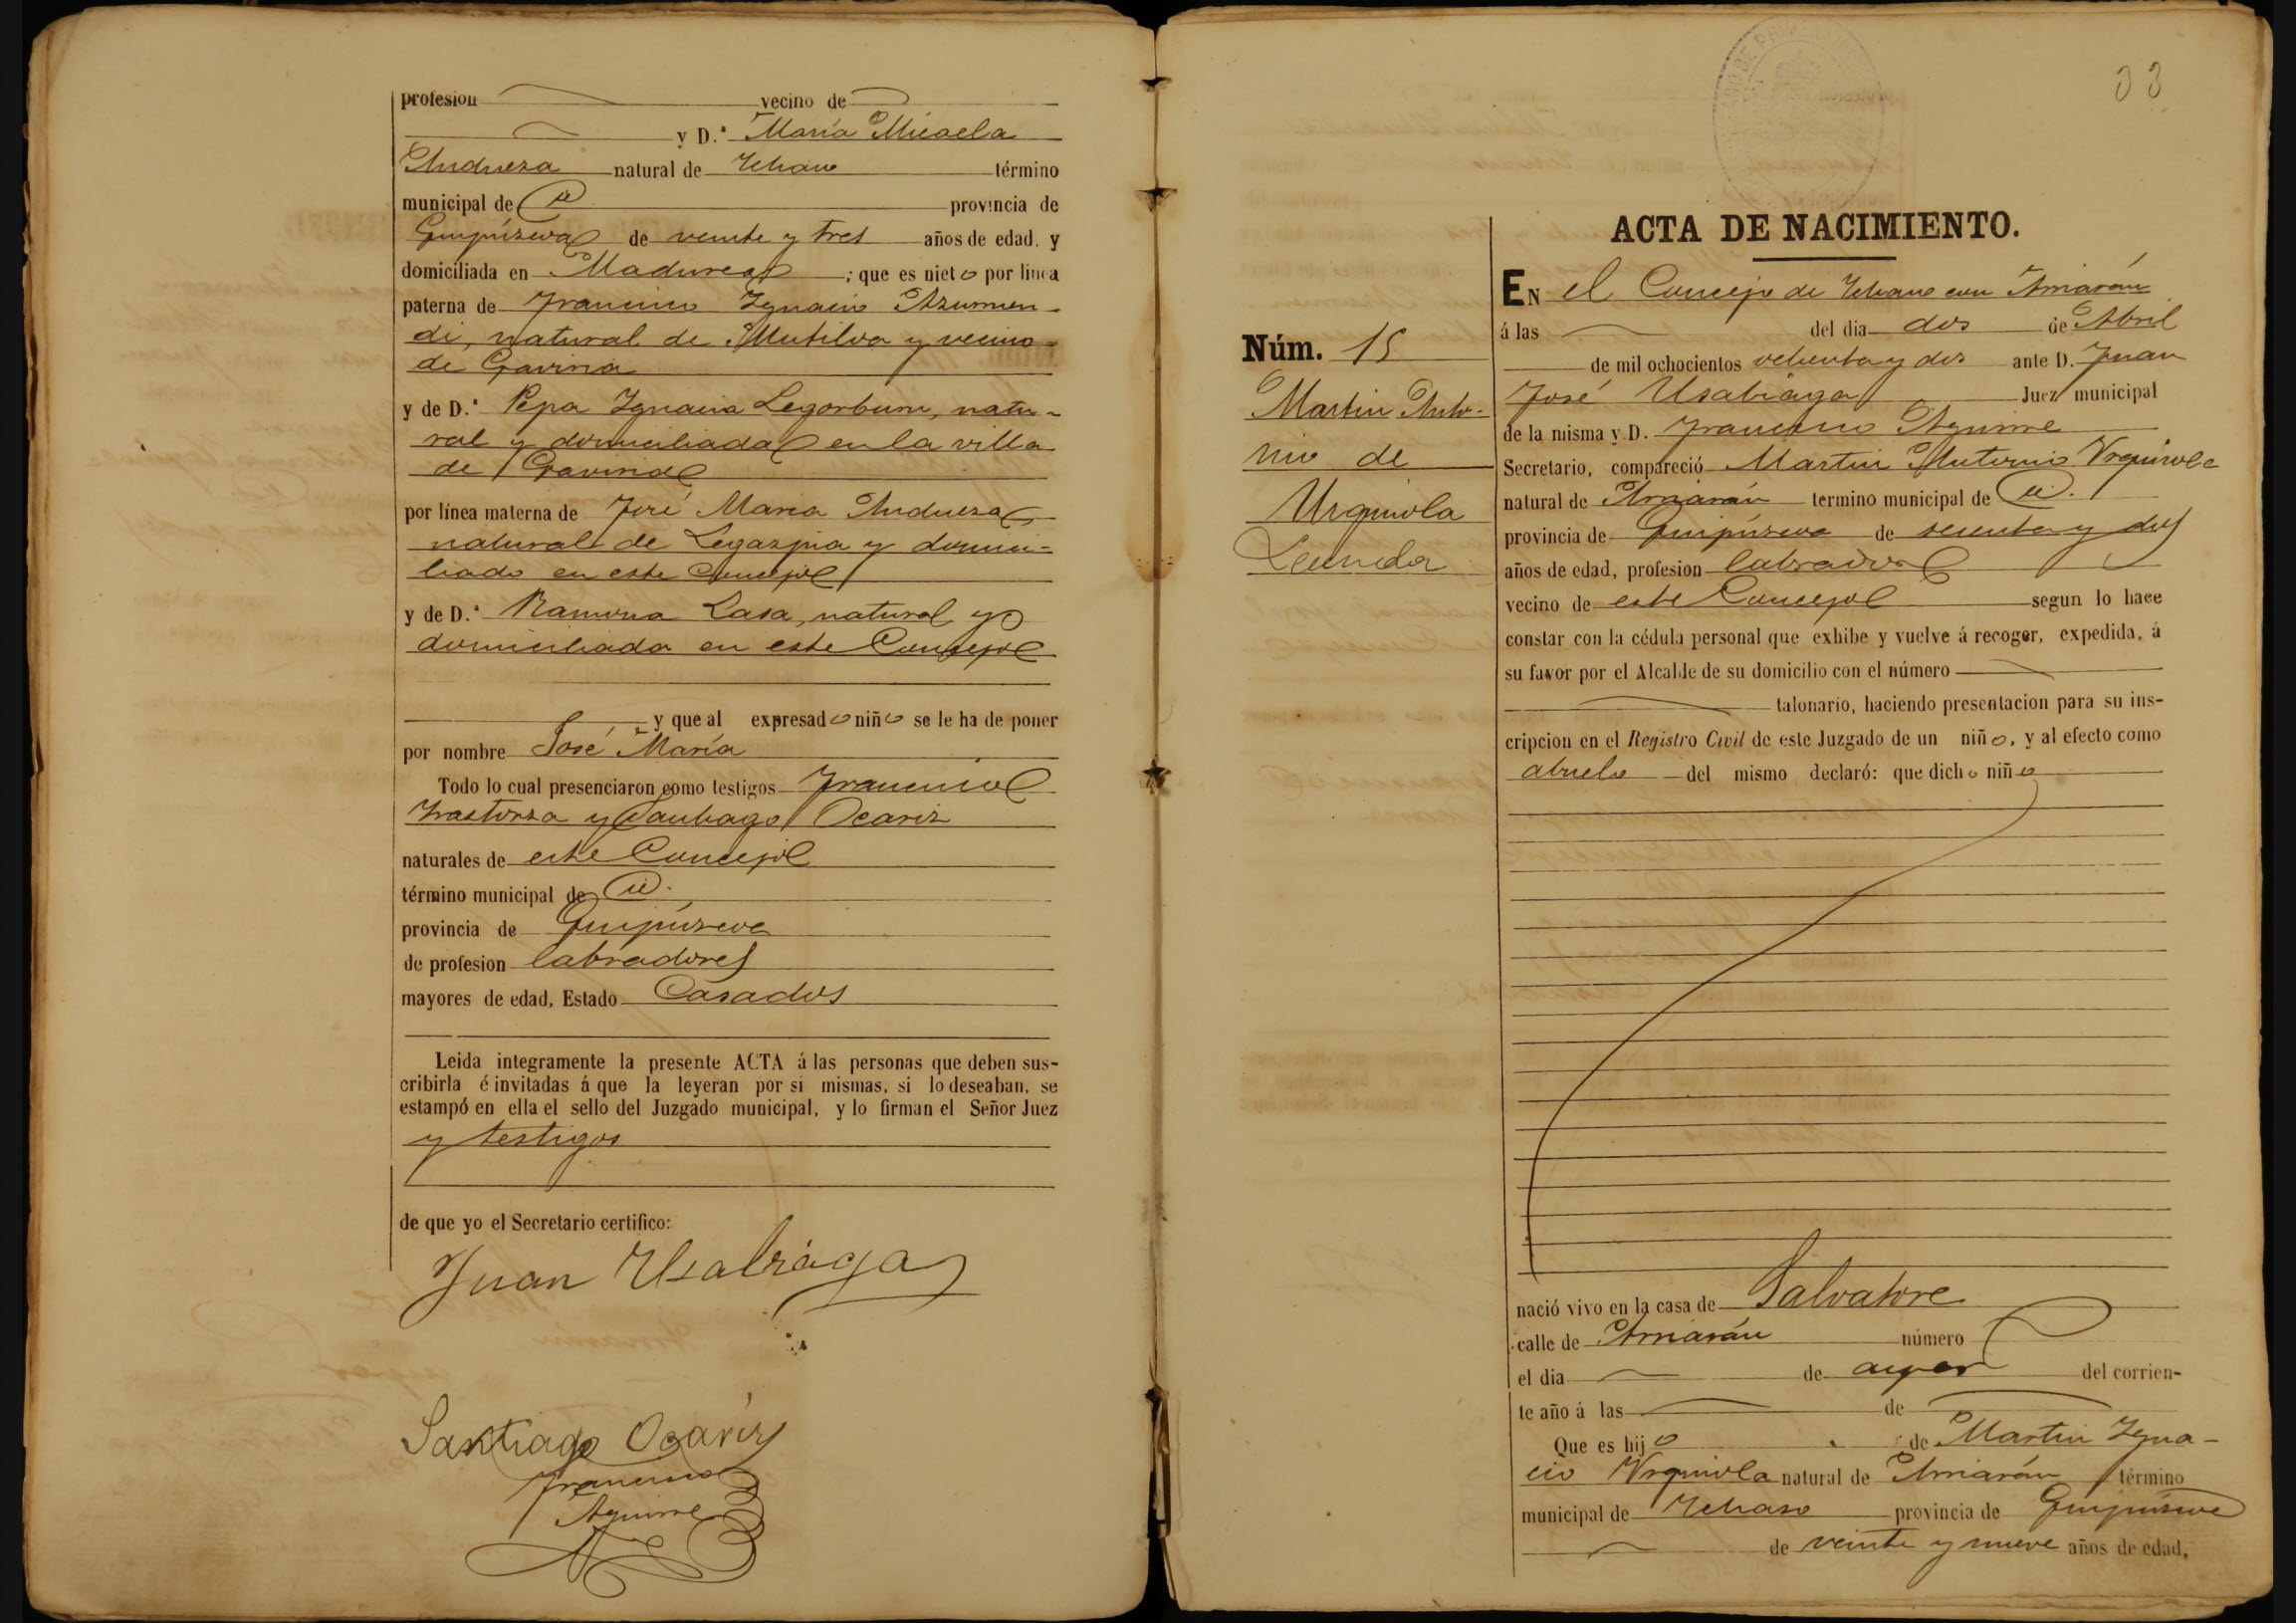 profesion vecino de
y D.ª María Micaela
Andueza natural de Ichaso término
municipal de id. provincia de
Guipúzcoa de veinte y tres años de edad, y
domiciliada en Madurea ; que es nieto por linea
paterna de Francisco Ignacio Azurmen-
di, natural de Mutiloa y vecino
de Gaviria
y de D.ª Pepa Ignacia Legorburu, natu-
ral y domiciliada en la villa
de Gaviria
por línea materna de José Maria Andueza
natural de Legazpia y domici-
liado en este Concejo
y de D.ª Ramona Lasa, natural y
domiciliada en este Concejo
y que al expresado niño se le ha de poner
por nombre José María
Todo lo cual presenciaron como testigos Francisco
Irastorza y Santiago Ocariz
naturales de este Concejo
término municipal de id.
provincia de Guipúzcoa
de profesion labradores
mayores de edad, Estado Casados
Leida integramente la presente ACTA á las personas que deben sus-
cribirla é invitadas á que la leyeran por si mismas, si lo deseaban, se
estampó en ella el sello del Juzgado municipal, y lo firman el Señor Juez
y testigos
de que yo el Secretario certifico:
Juan Usabiaga
Santiago Ocariz
Francisco
Aguirre
33
ACTA DE NACIMIENTO.
Núm. 15
Martin Anto-
nio de
Urquiola
Leunda
EN el Concejo de Ichaso con Arriarán
á las del dia dos de Abril
de mil ochocientos ochenta y dos ante D. Juan
José Usabiaga Juez municipal
de la misma y D. Francisco Aguirre
Secretario, compareció Martin Antonio Urquiola
natural de Arriarán termino municipal de id.
provincia de Guipúzcoa de sesenta y dos
años de edad, profesion labrador
vecino de este Concejo segun lo hace
constar con la cédula personal que exhibe y vuelve á recoger, expedida, á
su favor por el Alcalde de su domicilio con el número
talonario, haciendo presentacion para su ins-
cripcion en el Registro Civil de este Juzgado de un niño, y al efecto como
abuelo del mismo declaró: que dicho niño
nació vivo en la casa de Salvatore
calle de Arriarán número
el dia de ayer del corrien-
te año á las de
Que es hijo de Martin Igna-
cio Urquiola natural de Arriarán término
municipal de Ichaso provincia de Guipúzcoa
de veinte y nueve años de edad,